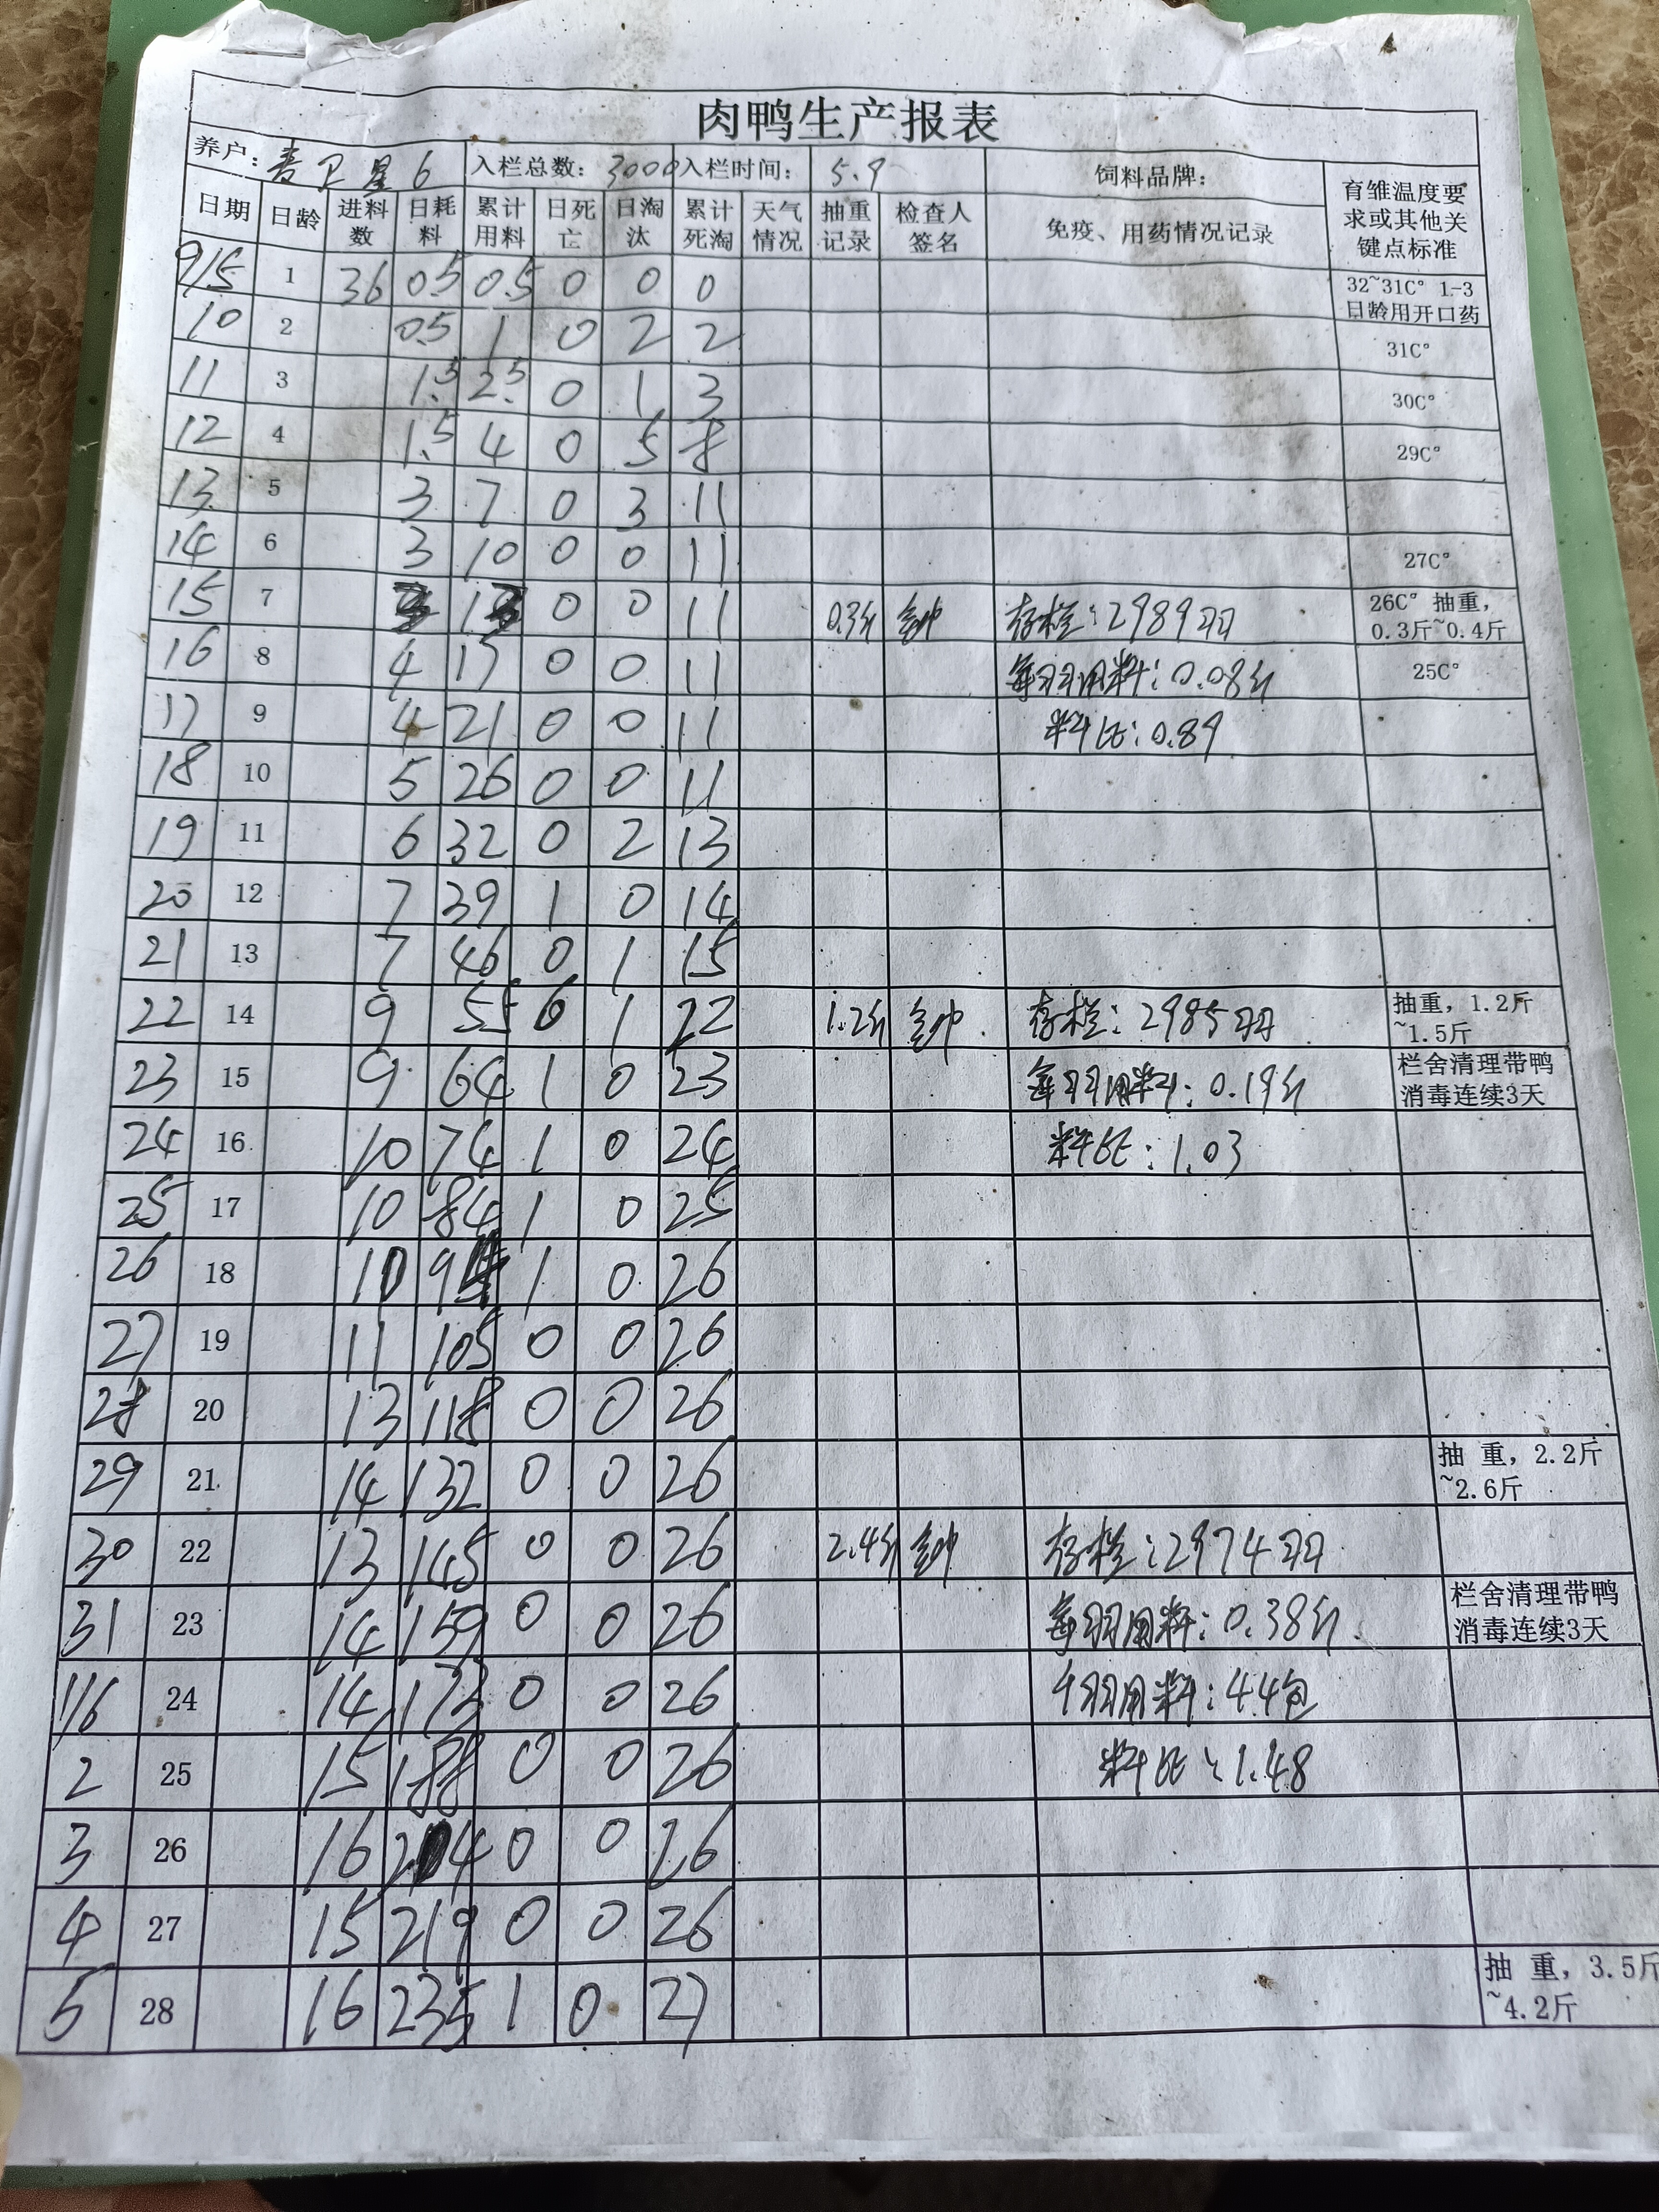 肉鸭生产报表
养户: 卫星6 入栏总数: 3000 入栏时间: 5.9 饲料品牌: 育雏温度要求或其他关键点标准
日期 日龄 进料数 日耗料 累计用料 日死亡 日淘汰 累计死淘 天气情况 抽重记录 检查人签名 免疫、用药情况记录
9/5 1 36 0.5 0.5 0 0 0 32~31C° 1-3日龄用开口药
10 2 0.5 1 0 2 2 31C°
11 3 1.5 2.5 0 1 3 30C°
12 4 1.5 4 0 5 8 29C°
13 5 3 7 0 3 11
14 6 3 10 0 0 11 27C°
15 7 3 13 0 0 11 0.3斤 存栏:2989羽 26C° 抽重，0.3斤~0.4斤
16 8 4 17 0 0 11 每羽用料:0.08斤 25C°
17 9 4 21 0 0 11 料比:0.89
18 10 5 26 0 0 11
19 11 6 32 0 2 13
20 12 7 39 1 0 14
21 13 7 46 0 1 15
22 14 9 55 6 1 22 1.2斤 存栏:2985羽 抽重，1.2斤~1.5斤
23 15 9 64 1 0 23 每羽用料:0.19斤 栏舍清理带鸭消毒连续3天
24 16 10 74 1 0 24 料比:1.03
25 17 10 84 1 0 25
26 18 10 94 1 0 26
27 19 11 105 0 0 26
28 20 13 118 0 0 26
29 21 14 132 0 0 26 抽 重，2.2斤~2.6斤
30 22 13 145 0 0 26 2.4斤 存栏:2974羽
31 23 14 159 0 0 26 每羽用料:0.38斤 栏舍清理带鸭消毒连续3天
1/6 24 14 173 0 0 26 千羽用料:44包
2 25 15 188 0 0 26 料比:1.48
3 26 16 204 0 0 26
4 27 15 219 0 0 26
5 28 16 235 1 0 27 抽 重，3.5斤~4.2斤